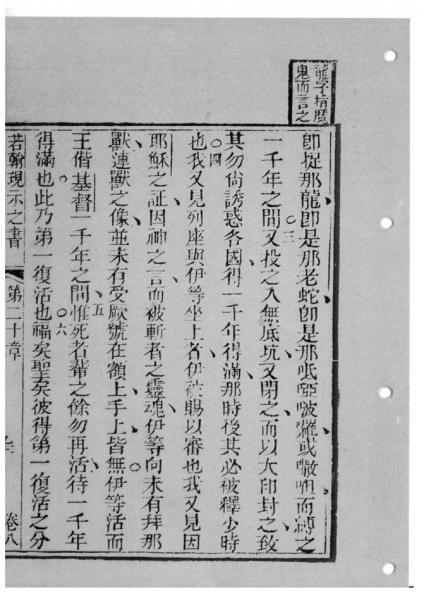 龍字指魔
鬼而言之
卽捉那龍卽是那老蛇卽是那呧啞啵囉或𠹌呾而縛之
三
一千年之間又投之入無底坑又閉之而以大印封之致
其勿尙誘惑各國得一千年得滿那時後其必被釋少時
四
也我又見列座與伊等坐上者伊被賜以審也我又見因
耶穌之証因神之言而被斬者之靈魂伊等向未有拜那
獸連獸之像並未有受厥號在額上手上皆無伊等活而
王偕基督一千年之間惟死者輩之餘勿再活待一千年
五
得滿也此乃第一復活也福矣聖矣彼得第一復活之分
六
若翰現示之書 第二十章 卷八